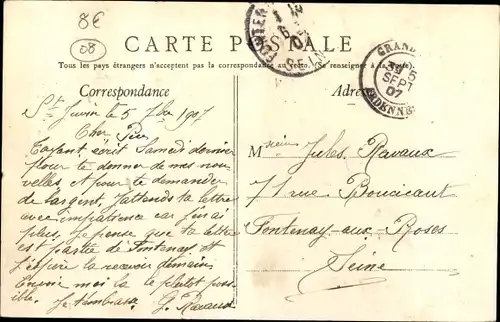 8€
08
CARTE POSTALE
Tous les pays étrangers n'acceptent pas la correspondance au recto. (Se renseigner à la Poste).
Correspondance
Adresse
GRAND
5
SEPT
07
ARDENNES
St Juvin le 5 7bre 1907
Cher Père
T'ayant écrit Samedi dernier
pour te donner de mes nou-
velles. et pour te demander
de l'argent, j'attends ta lettre
avec impatience car j'n'ai
plus, Je pense que ta lettre
est partie de Fontenay et
j'espère la recevoir demain
Envoie moi la le plutôt poss
ible. Je t'embrasse G. Ravaux
Monsieur Jules Ravaux
71 rue Boucicaut
Fontenay-aux-Roses
Seine